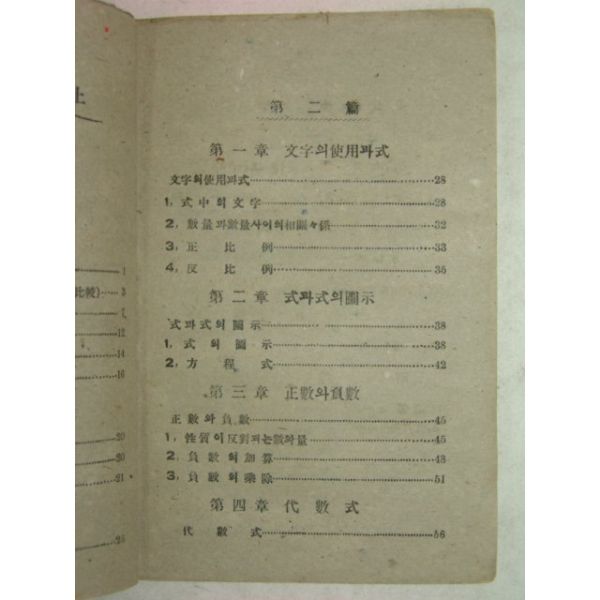 上
1
比較)……3
7
12
14
16
20
20
21
第二篇
第一章 文字의使用과式
文字의使用과式……28
1, 式中의文字……28
2, 數量과數量사이의相關々係……32
3, 正比例……33
4, 反比例……35
第二章 式과式의圖示
式과式의圖示……38
1, 式의圖示……38
2, 方程式……42
第三章 正數와負數
正數와負數……45
1, 性質이反對되는數와量……45
2, 負數의加算……43
3, 負數의乘除……51
第四章 代數式
代數式……56